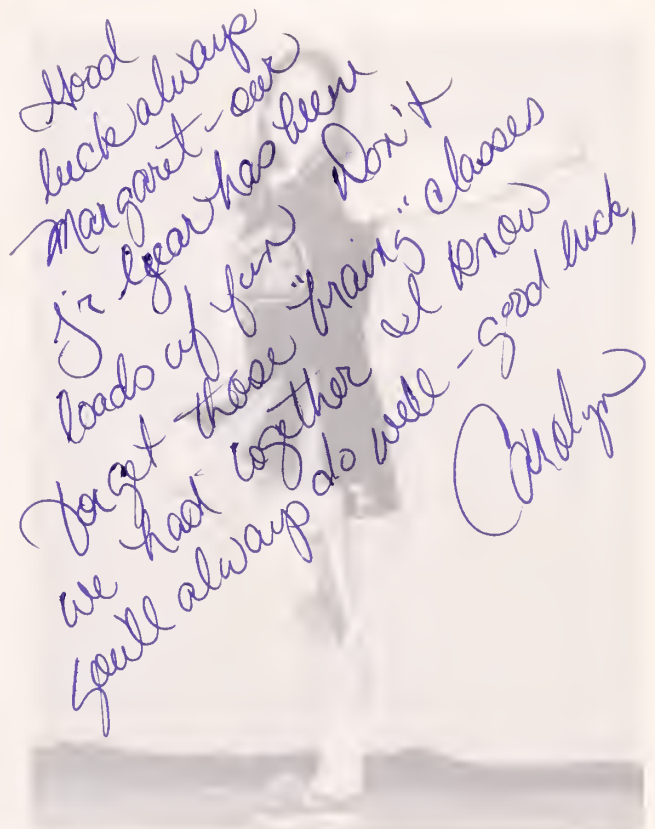 Good
luck always
Margaret - our
Jr year has been
loads of fun Don't
forget those "braing" classes
we had together I know
you'll always do well - good luck,
Carolyn